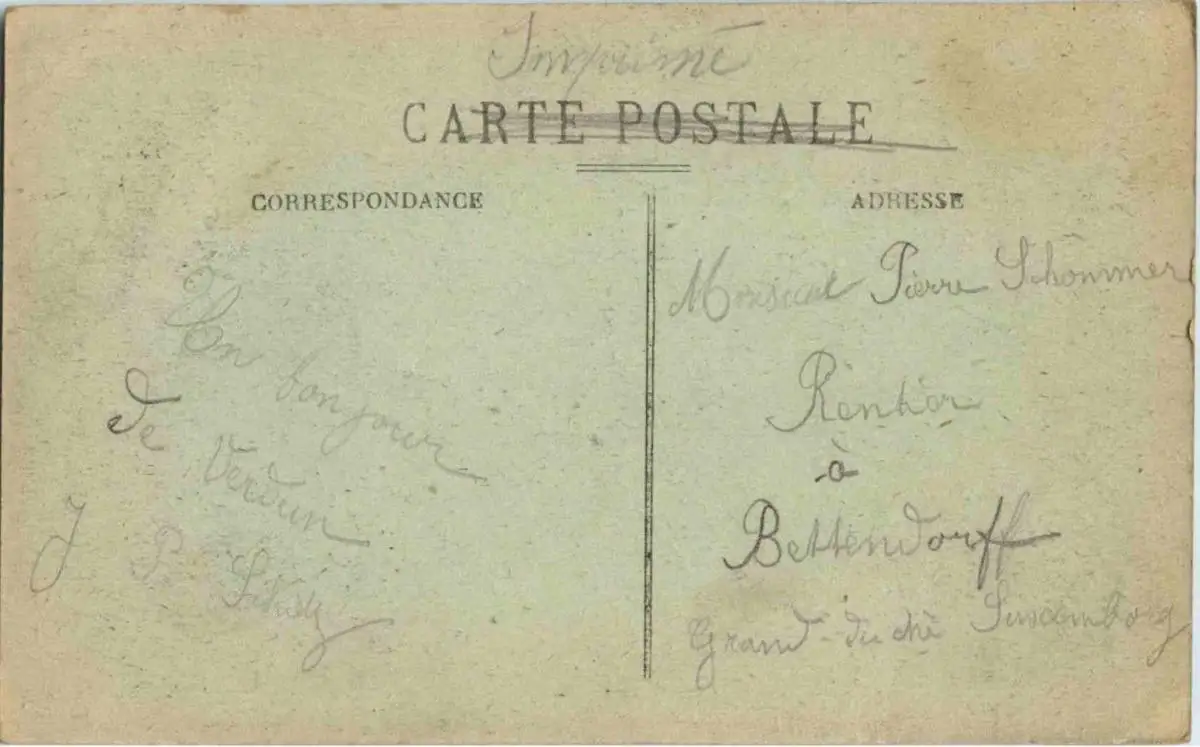 Imprimé
CARTE POSTALE
CORRESPONDANCE
ADRESSE
Un bonjour
de Verdun
J P
Monsieur Pierre Schommer
Rentier
à
Bettendorff
Grand-duché Luxembourg